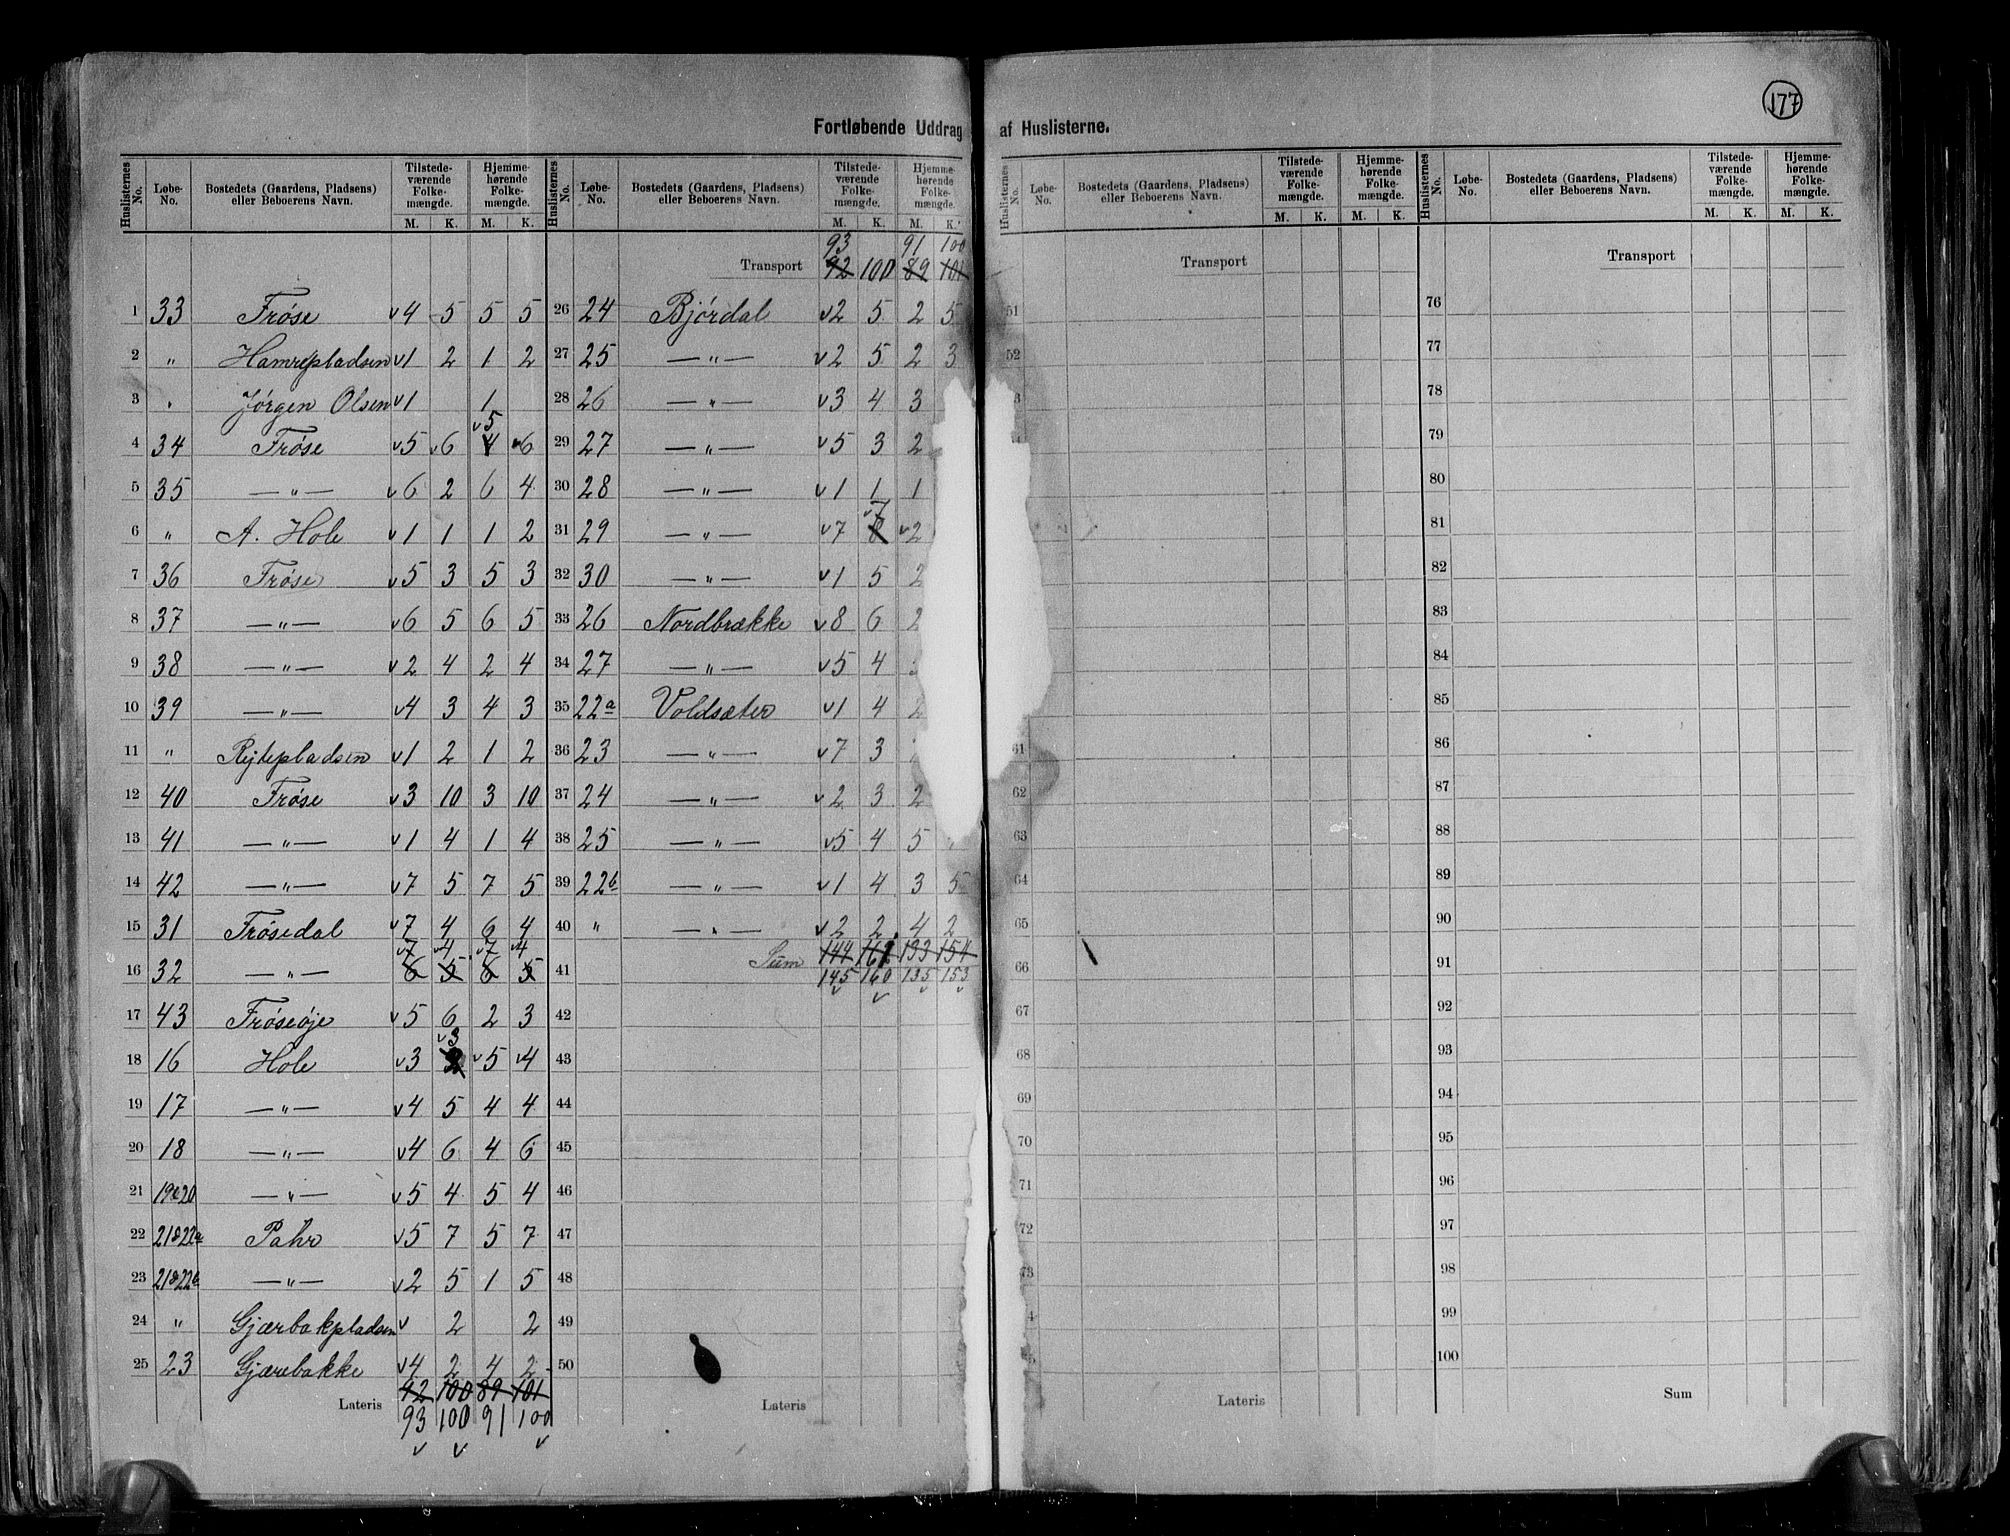 177
Fortløbende Uddrag af Huslisterne.
Huslisternes No. | Løbe-No. | Bostedets (Gaardens, Pladsens) eller Beboerens Navn. | Tilstedeværende Folkemængde. M. K. | Hjemmehørende Folkemængde. M. K.
1 33 Frøse v4 5 5 5
2 " Hamrepladsen v1 2 1 2
3 " Jørgen Olsen v1 1
4 34 Frøse v5 v6 v5 4 v6
5 35 —"— v6 2 6 4
6 " A. Hole v1 1 1 2
7 36 Frøse v5 3 5 3
8 37 —"— v6 5 6 5
9 38 —"— v2 4 2 4
10 39 —"— v4 3 4 3
11 " Rejtepladsen v1 2 1 2
12 40 Frøse v3 10 3 10
13 41 —"— v1 4 1 4
14 42 —"— v7 5 7 5
15 31 Frøsedal v7 4 6 4
v7 v4 v7 v4
16 32 —"— 6 5 6 5
17 43 Frøseøje v5 6 2 3
18 16 Hole v3 v3 v5 v4
19 17 —"— v4 5 4 4
20 18 —"— v4 6 4 6
21 19&20 —"— v5 4 5 4
22 21&22a Pahr v5 7 5 7
23 21&22b —"— v2 5 1 5
24 " Gjærbakpladsen v 2 2
25 23 Gjærebakke v4 2 4 2
92 100 89 101
Lateris 93 100 91 100
v v v
Huslisternes No. | Løbe-No. | Bostedets (Gaardens, Pladsens) eller Beboerens Navn. | Tilstedeværende Folkemængde. M. K. | Hjemmehørende Folkemængde. M. K.
93 91 100
Transport 92 100 89 101
26 24 Bjørdal v2 5 2 5
27 25 —"— v2 5 2 3
28 26 —"— v3 4 3
29 27 —"— v5 3 2
30 28 —"— v1 1 1
31 29 —"— v7 v7 8 v2
32 30 —"— v1 5 2
33 26 Nordbrække v8 6 2
34 27 —"— v5 4
35 22a Voldsæter v1 4 2
36 23 —"— v7 3
37 24 —"— v2 3 2
38 25 —"— v5 4 5
39 22b —"— v1 4 3 5
40 " —"— v2 2 4 2
41 Sum 144 161 133 154
145 160 135 153
v v v v
42
43
44
45
46
47
48
49
50
Lateris
Huslisternes No. | Løbe-No. | Bostedets (Gaardens, Pladsens) eller Beboerens Navn. | Tilstedeværende Folkemængde. M. K. | Hjemmehørende Folkemængde. M. K.
Transport
51
52
3
61
62
63
64
65
66
67
68
69
70
71
72
73
4
5
Lateris
Huslisternes No. | Løbe-No. | Bostedets (Gaardens, Pladsens) eller Beboerens Navn. | Tilstedeværende Folkemængde. M. K. | Hjemmehørende Folkemængde. M. K.
Transport
76
77
78
79
80
81
82
83
84
85
86
87
88
89
90
91
92
93
94
95
96
97
98
99
100
Sum